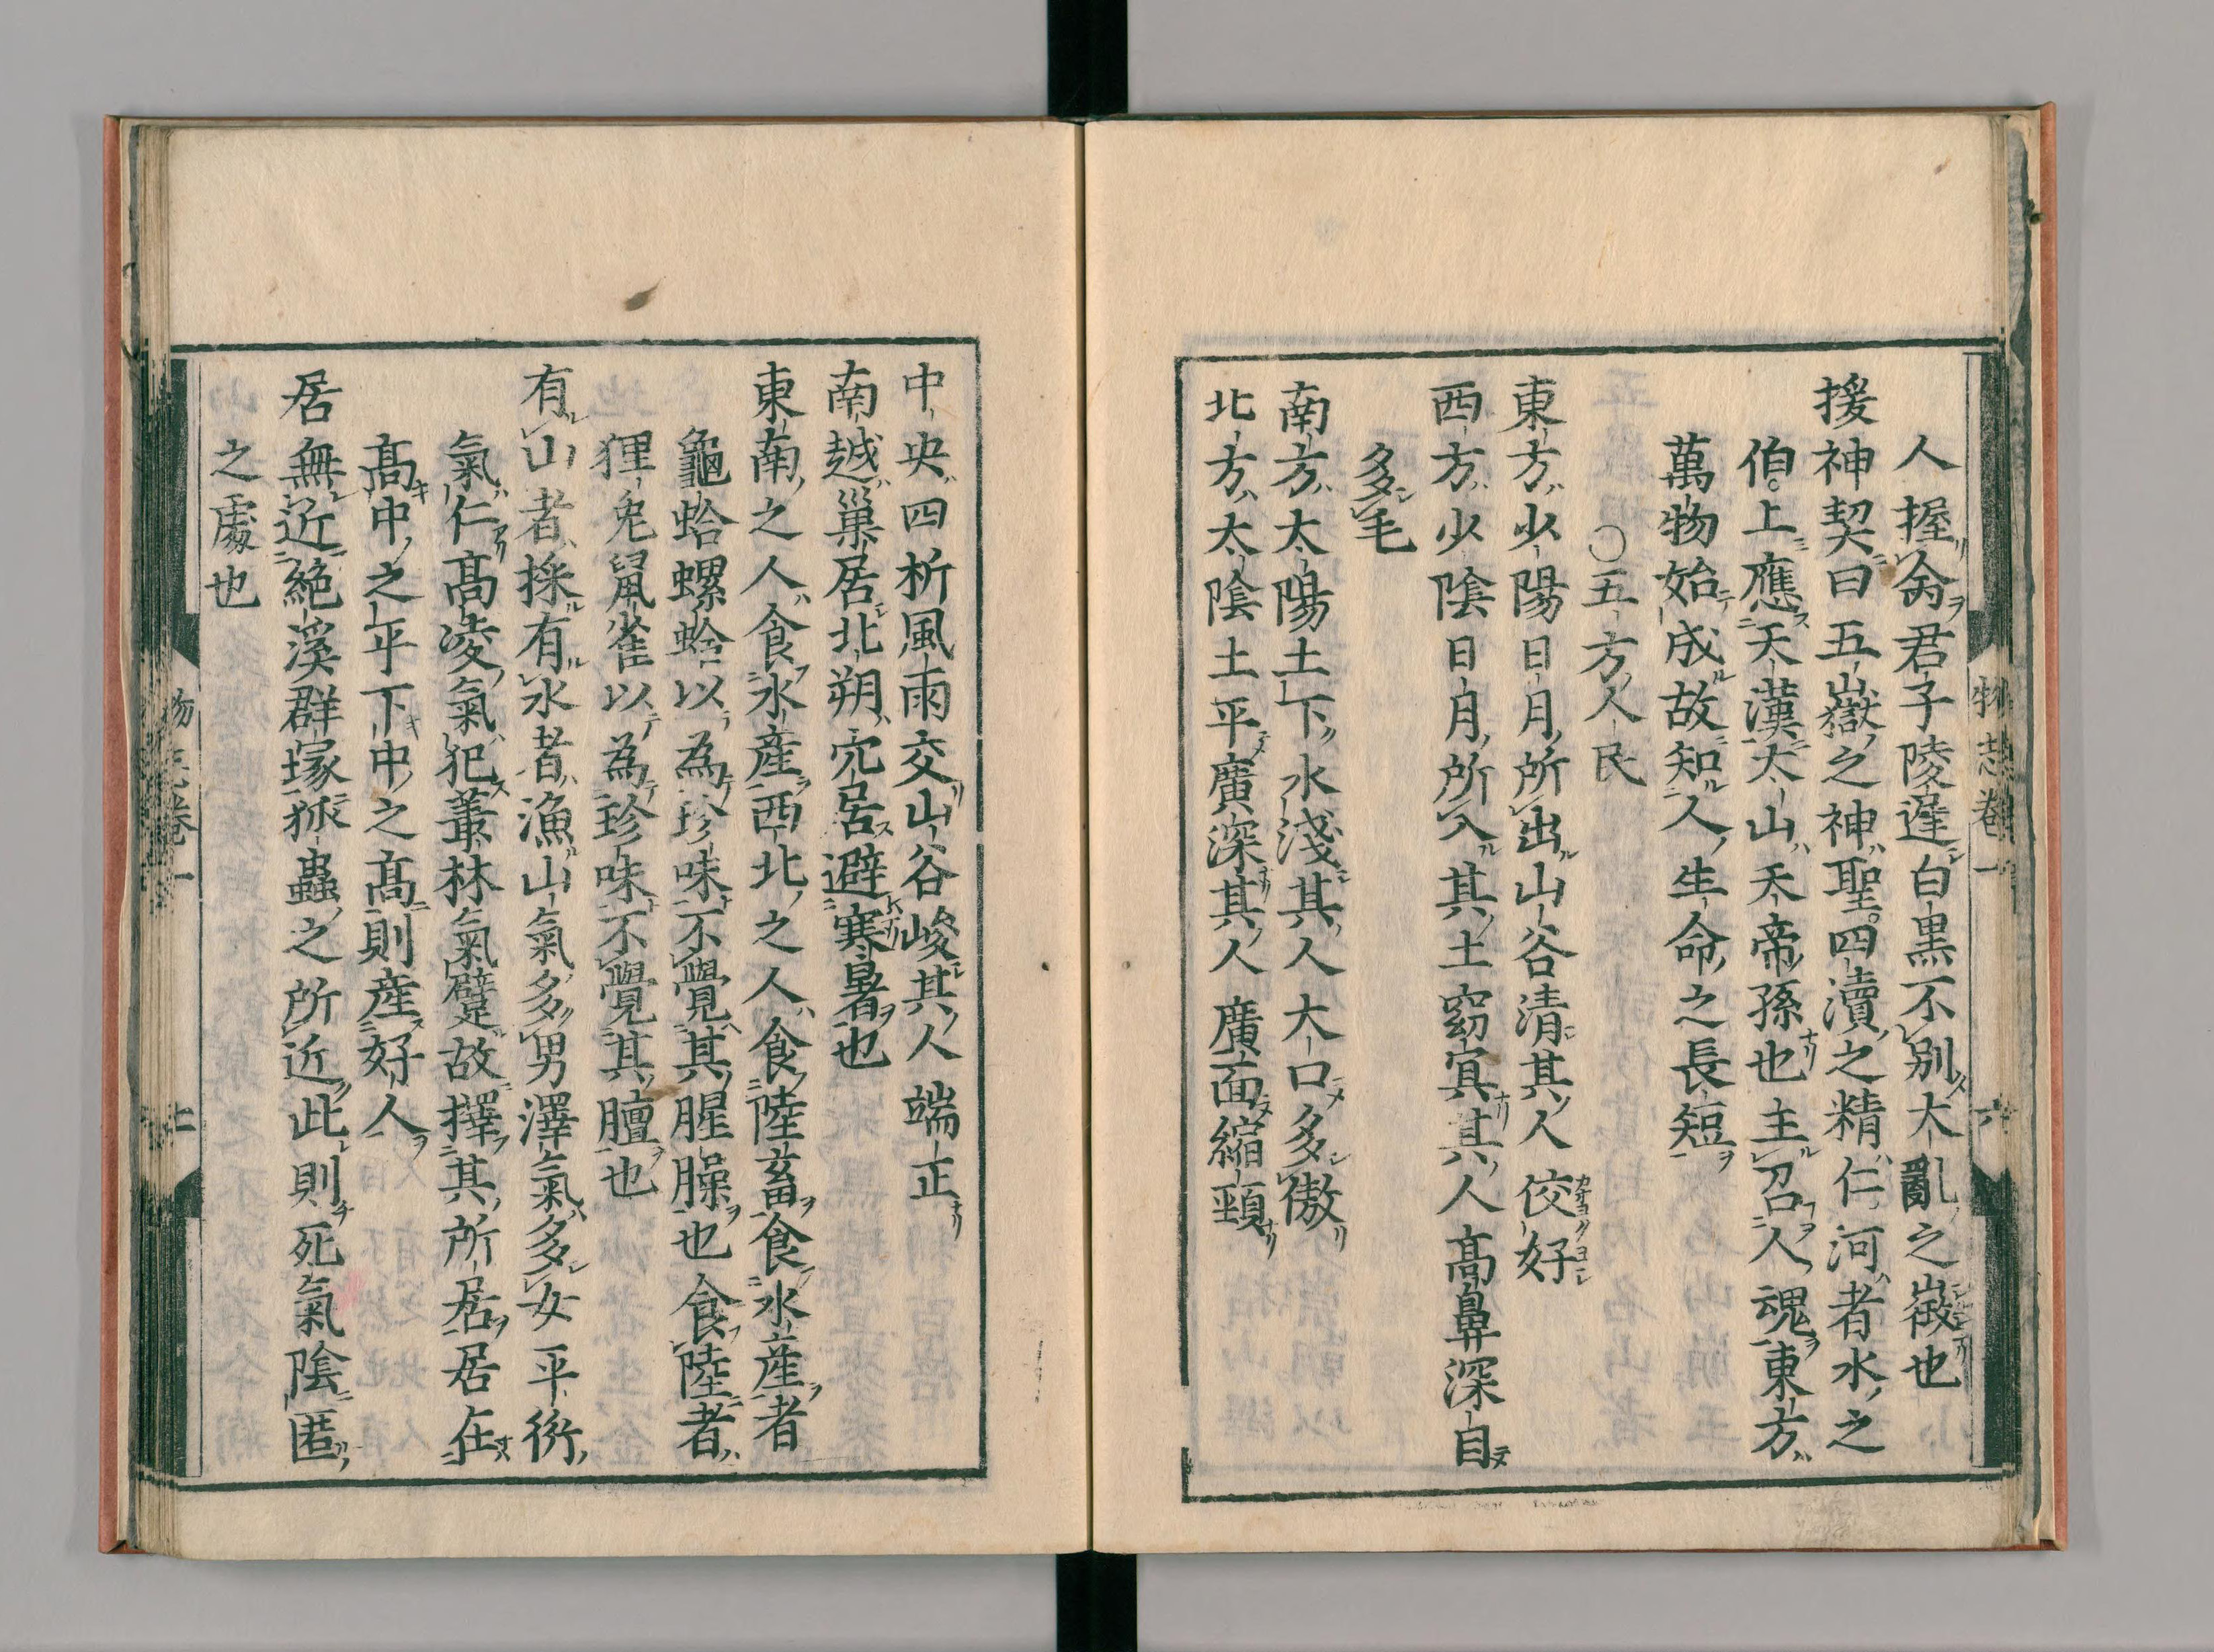 人握命君子陵遲白黒不別大亂之徴也
援神契曰五嶽之神聖四瀆之精仁河者水之
伯上應天漢太山天帝孫也主召人魂東方
萬物始成故知人生命之長短
〇五方人民
東方少陽日月所出山谷清其人佼好
西方少陰日月所入其土窈冥其人高鼻深目
多毛
南方太陽土下水淺其人大口多傲
北方太陰土平廣深其人廣面縮頸
中央四析風雨交山谷峻其人端正
南越巢居北朔穴居避寒暑也
東南之人食水産西北之人食陸畜食水産者
龜蛤螺蛤以為珍味不覺其腥臊也食陸者
狸兎鼠雀以為珍味不覺其膻也
有山者採有水者漁山氣多男澤氣多女平衍
氣仁高凌氣犯叢林氣躄故擇其所居居在
高中之平下中之高則産好人
居無近絶溪群塚狐蟲之所近此則死氣陰匿
之處也
物志卷一
六
物志卷一
七